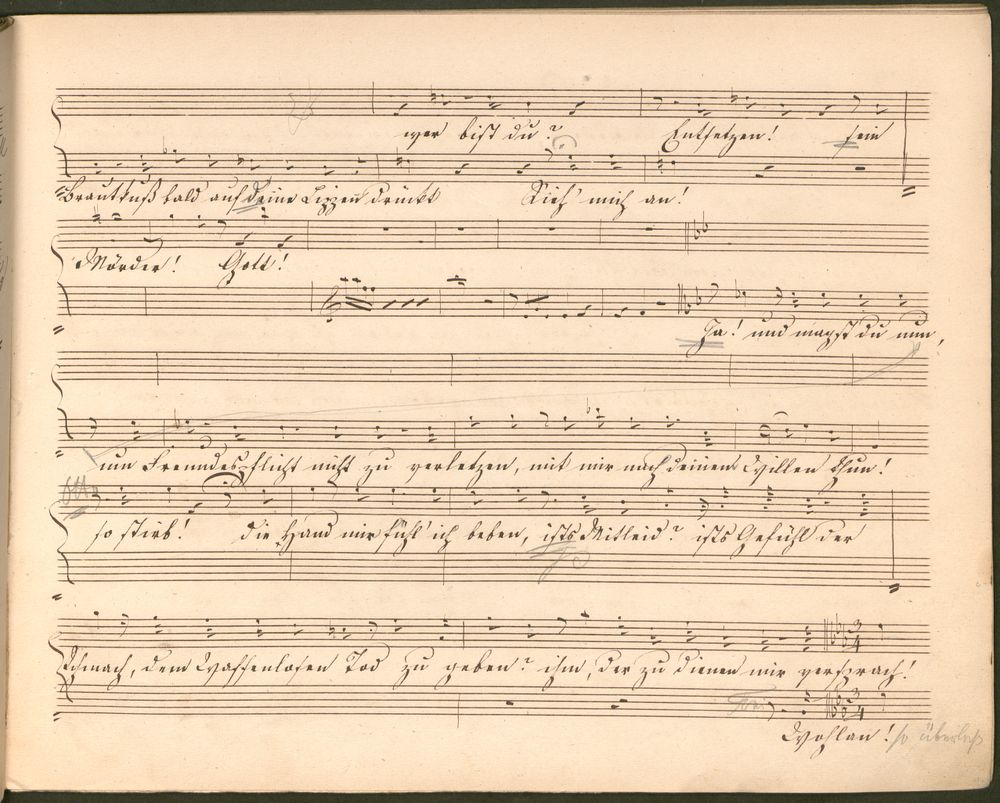 wer bist du? Entsetzen! sein
Brautkuß bald auf deine Lippen drückt Sieh' mich an!
Mörder! Gott!
Ha! und magst du nun,
um Freundespflicht nicht zu verletzen, mit mir nach deinem Willen thun!
so stirb! die Hand mir fühl' ich beben, ists Mitleid? ists Gefühl der
Schmach, dem Waffenlosen Tod zu geben? ihm, der zu dienen mir versprach!
Wohlan! so überlaß